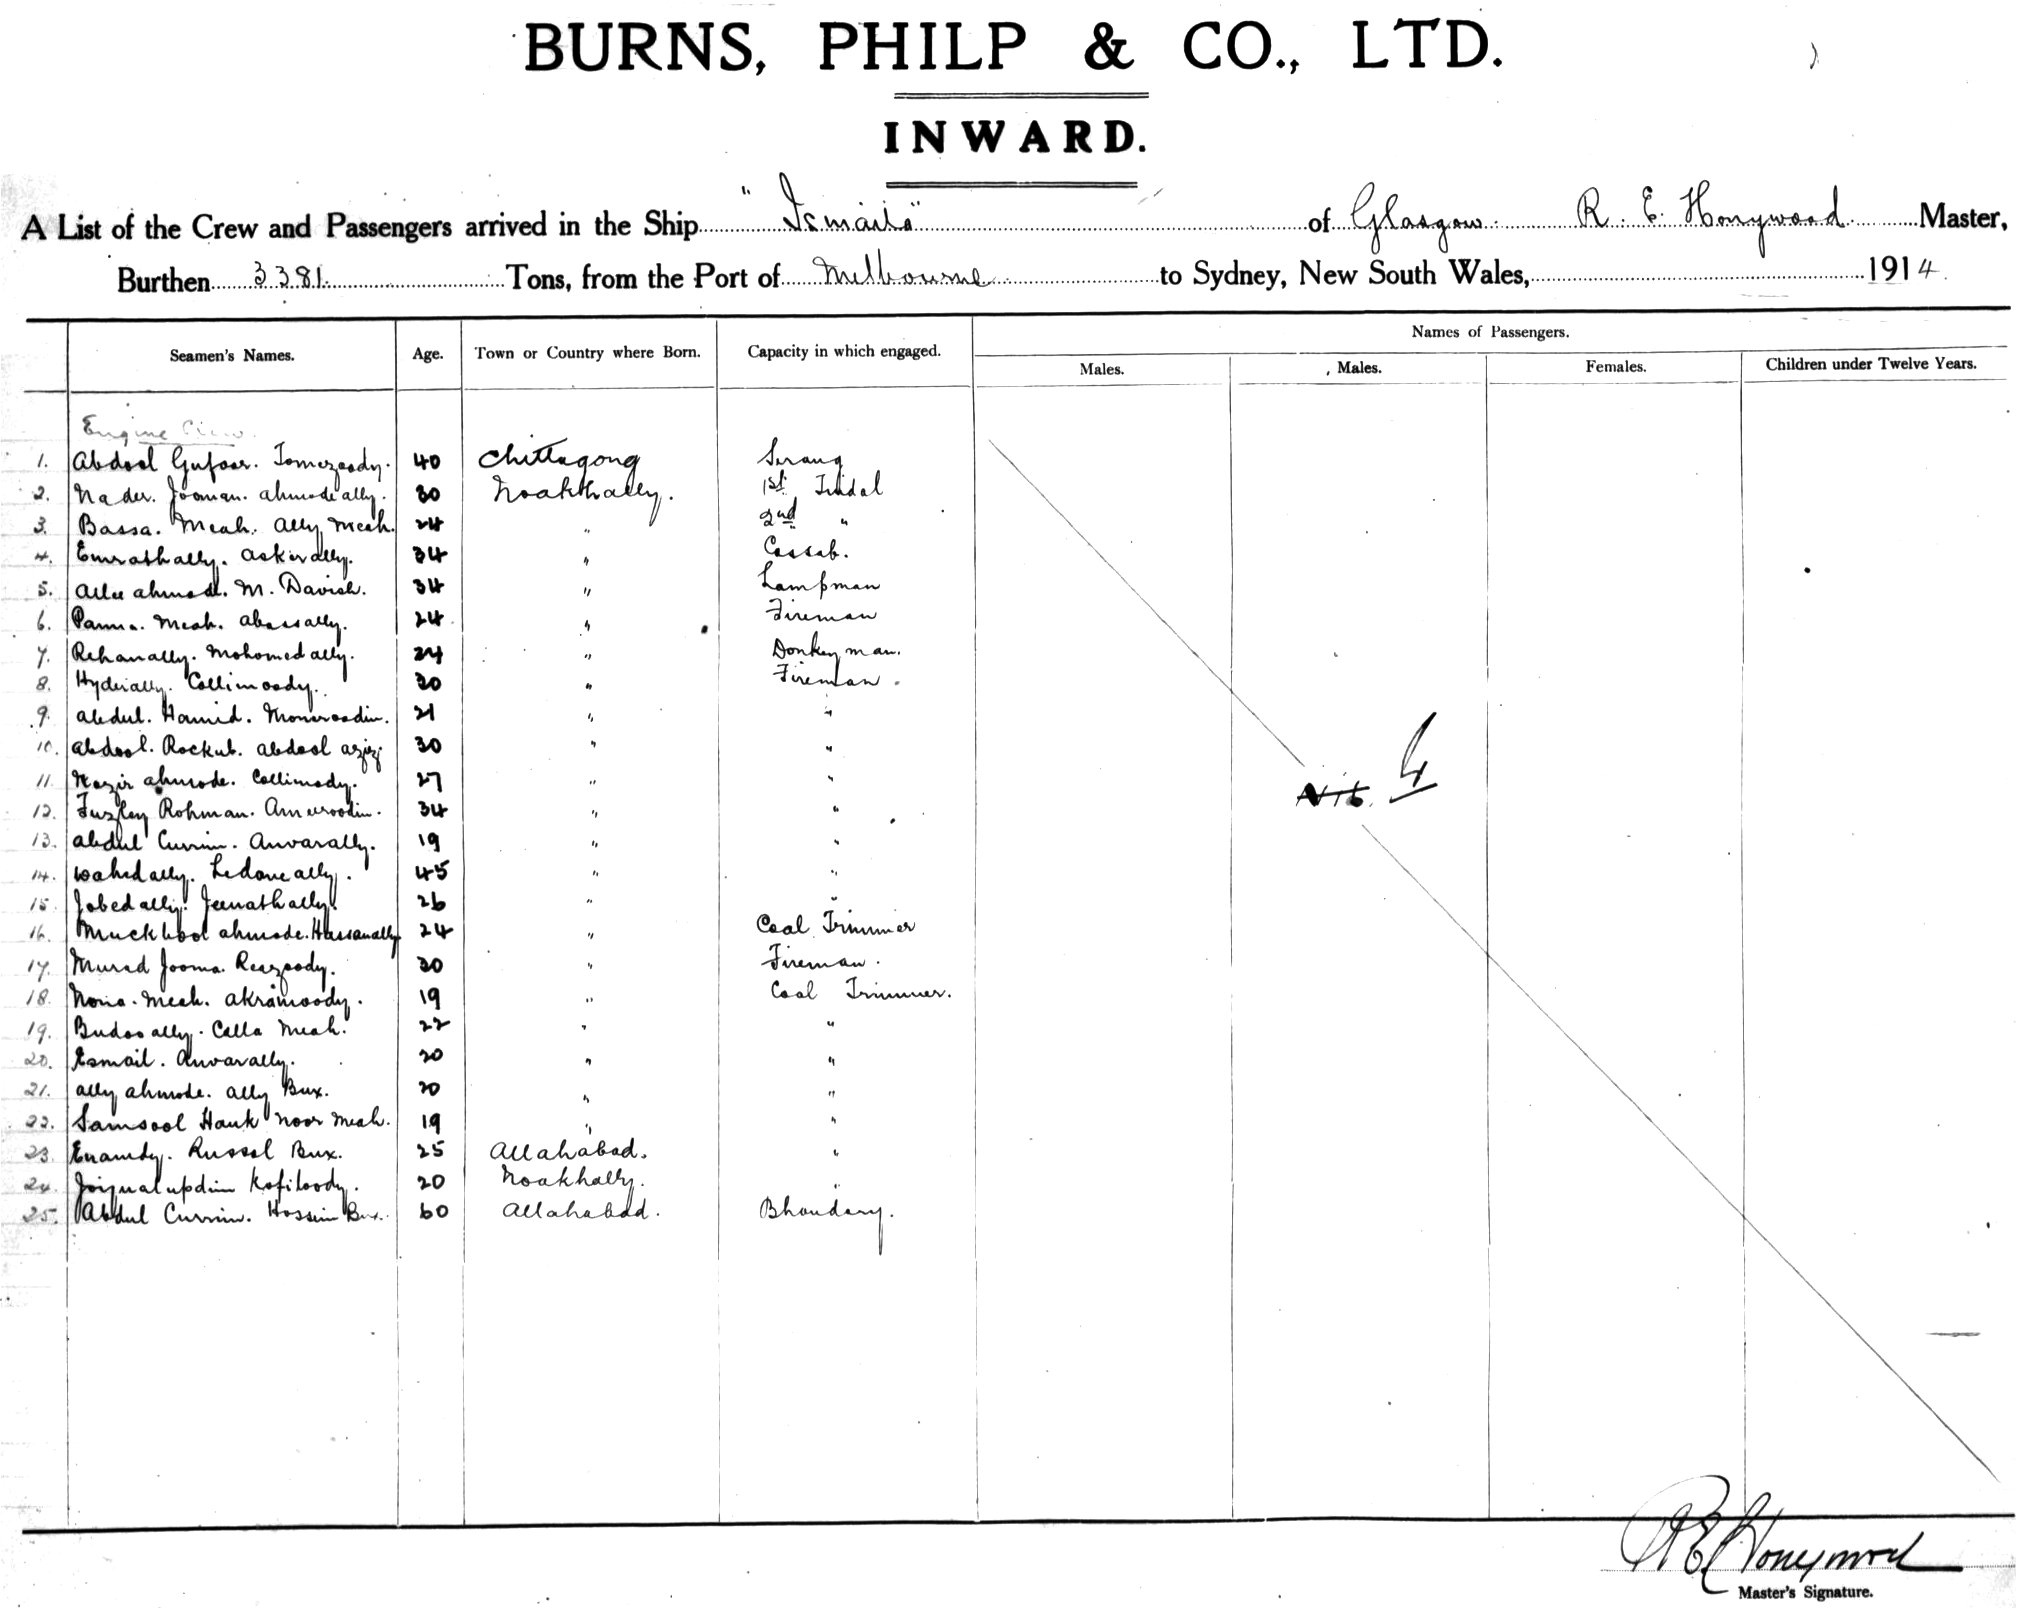 BURNS, PHILP & CO., LTD.
INWARD.
A List of the Crew and Passengers arrived in the Ship "Ismaila" of Glasgow. R. E. Honywood. Master,
Burthen 3381. Tons, from the Port of Melbourne to Sydney, New South Wales, 1914.
Names of Passengers.
Seamen's Names. Age. Town or Country where Born. Capacity in which engaged. Males. Males. Females. Children under Twelve Years.
Engine Crew.
1. Abdool Gufoor. Tomezoody. 40 Chittagong Serang
2. Nader. Jooman. ahmode ally. 30 Noakhally. 1st Tindal
3. Bassa. Meah. Ally Meah. 24 " 2nd "
4. Emrathally. Askerally. 34 " Cassab.
5. Allee ahmed. M. Davish. 34 " Lampman
6. Panna. Meah. Abassally. 24 " Fireman
7. Rehanally. Mohomedally. 24 " Donkeyman.
8. Hyderally. Collimoody. 30 " Fireman.
9. Abdul. Hamid. Monoroodin. 21 " "
10. Abdool. Rockub. Abdool aziz 30 " "
11. Nazir ahmode. Collimody. 27 " "
12. Fuzley Rohman. Ameeroodin. 34 " "
13. Abdul Currim. Anwarally. 19 " "
14. Wahedally. ally. 45 " "
15. Jobedally. Jeenathally. 26 " "
16. Muckbool ahmode. Hassanally 24 " Coal Trimmer
17. Murad Jooma. Reazoody. 30 " Fireman.
18. Nona. Meah. Akramoody. 19 " Coal Trimmer.
19. Budooally. Calla Meah. 22 " "
20. Esmail. Anwarally. 20 " "
21. Ally ahmode. Ally Bux. 20 " "
22. Samsool Hauk Noor Meah. 19 " "
23. Enamdy. Russol Bux. 25 Allahabad. "
24. Kofiloody. 20 Noakhally. "
25. Abdul Currim. Hossein Bux. 60 Allahabad. Bhandary.
Nil. 4
R E Honywood
Master's Signature.